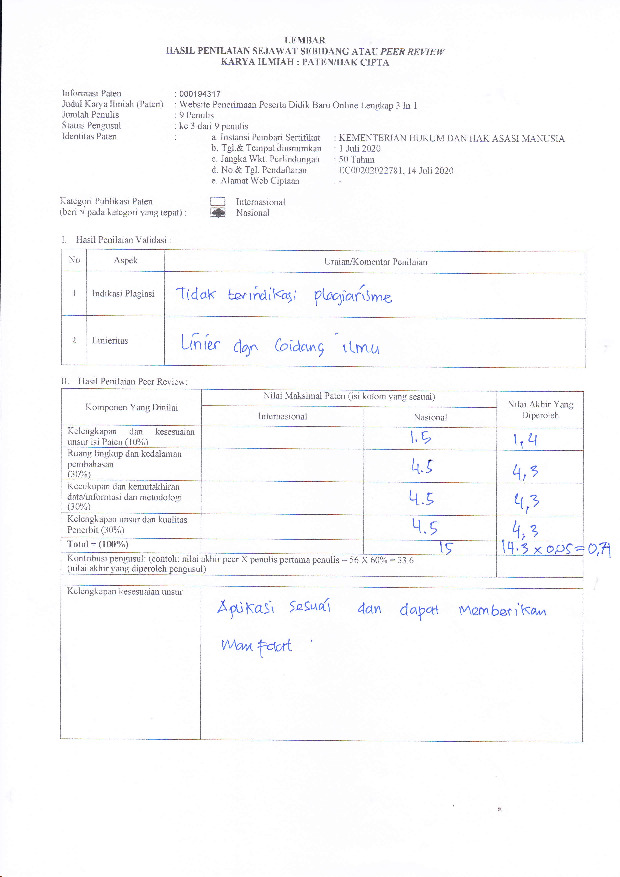 LEMBAR
HASIL PENILAIAN SEJAWAT SEBIDANG ATAU PEER REVIEW
KARYA ILMIAH : PATEN/HAK CIPTA
Informasi Paten : 000194317
Judul Karya Ilmiah (Paten) : Website Penerimaan Peserta Didik Baru Online Lengkap 3 In 1
Jumlah Penulis : 9 Penulis
Status Pengusul : ke 3 dari 9 penulis
Identitas Paten : a. Instansi Pemberi Sertifikat : KEMENTERIAN HUKUM DAN HAK ASASI MANUSIA
b. Tgl.& Tempat diumumkan : 1 Juli 2020
c. Jangka Wkt. Perlindungan : 50 Tahun
d. No & Tgl. Pendaftaran : EC00202022781, 14 Juli 2020
e. Alamat Web Ciptaan : -
Kategori Publikasi Paten Internasional
(beri pada kategori yang tepat) : Nasional
I. Hasil Penilaian Validasi :
No Aspek Uraian/Komentar Penilaian
1 Indikasi Plagiasi Tidak terindikasi plagiarisme
2 Linieritas Linier dgn bidang ilmu
II. Hasil Penilaian Peer Review:
Komponen Yang Dinilai Nilai Maksimal Paten (isi kolom yang sesuai) Nilai Akhir Yang Diperoleh
Internasional Nasional
Kelengkapan dan kesesuaian
unsur isi Paten (10%) 1.5 1,4
Ruang lingkup dan kedalaman
pembahasan
(30%) 4.5 4,3
Kecukupan dan kemutakhiran
data/informasi dan metodologi
(30%) 4.5 4,3
Kelengkapan unsur dan kualitas
Penerbit (30%) 4.5 4,3
Total = (100%) 15 14.3 x 0,05 = 0,71
Kontribusi pengusul: (contoh: nilai akhir peer X penulis pertama penulis = 56 X 60% = 33,6
(nilai akhir yang diperoleh pengusul)
Kelengkapan kesesuaian unsur Aplikasi sesuai dan dapat memberikan
manfaat